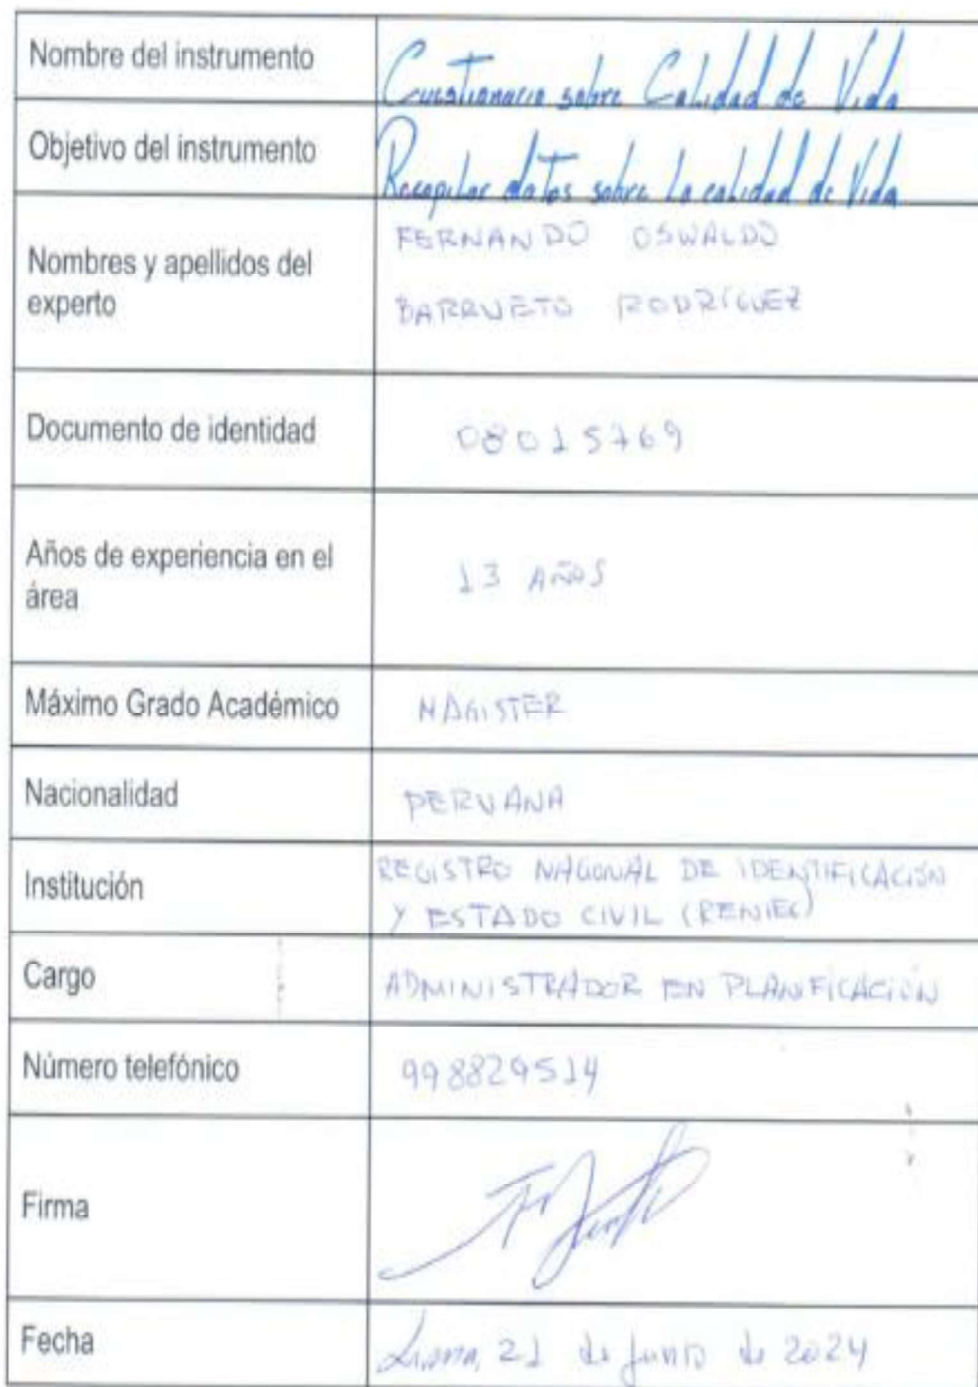 Nombre del instrumento
Cuestionario sobre Calidad de Vida
Objetivo del instrumento
Recopilar datos sobre la calidad de Vida
Nombres y apellidos del
experto
FERNANDO OSWALDO
BARRUETO RODRÍGUEZ
Documento de identidad
08015769
Años de experiencia en el
área
13 AÑOS
Máximo Grado Académico
MAGISTER
Nacionalidad
PERUANA
Institución
REGISTRO NACIONAL DE IDENTIFICACIÓN
Y ESTADO CIVIL (RENIEC)
Cargo
ADMINISTRADOR EN PLANIFICACIÓN
Número telefónico
998829514
Firma
Fecha
Lima, 21 de junio de 2024